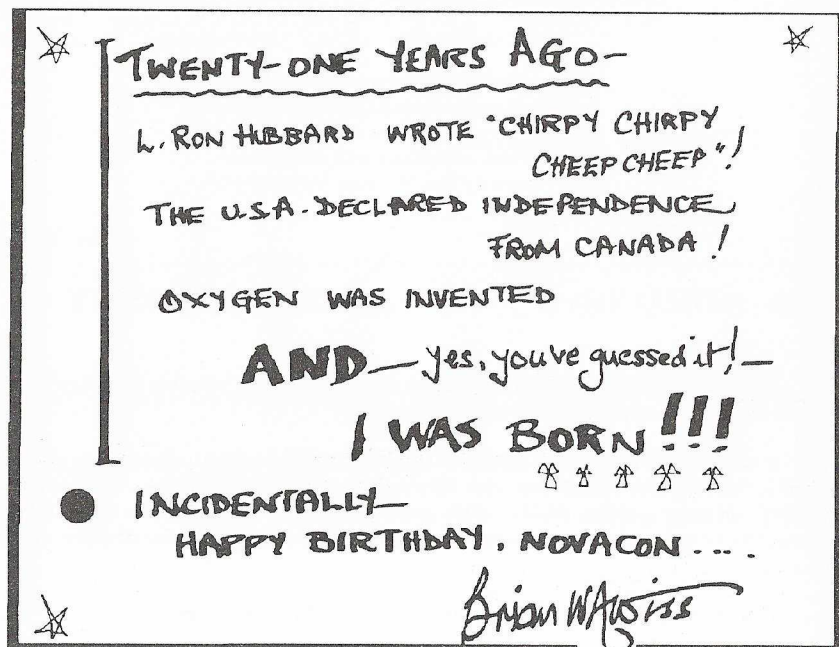 TWENTY-ONE YEARS AGO—
L. RON HUBBARD WROTE "CHIRPY CHIRPY
CHEEP CHEEP"!
THE U.S.A. DECLARED INDEPENDENCE
FROM CANADA!
OXYGEN WAS INVENTED
AND—yes, you've guessed it!—
I WAS BORN!!!
INCIDENTALLY—
HAPPY BIRTHDAY, NOVACON....
Brian W Aldiss